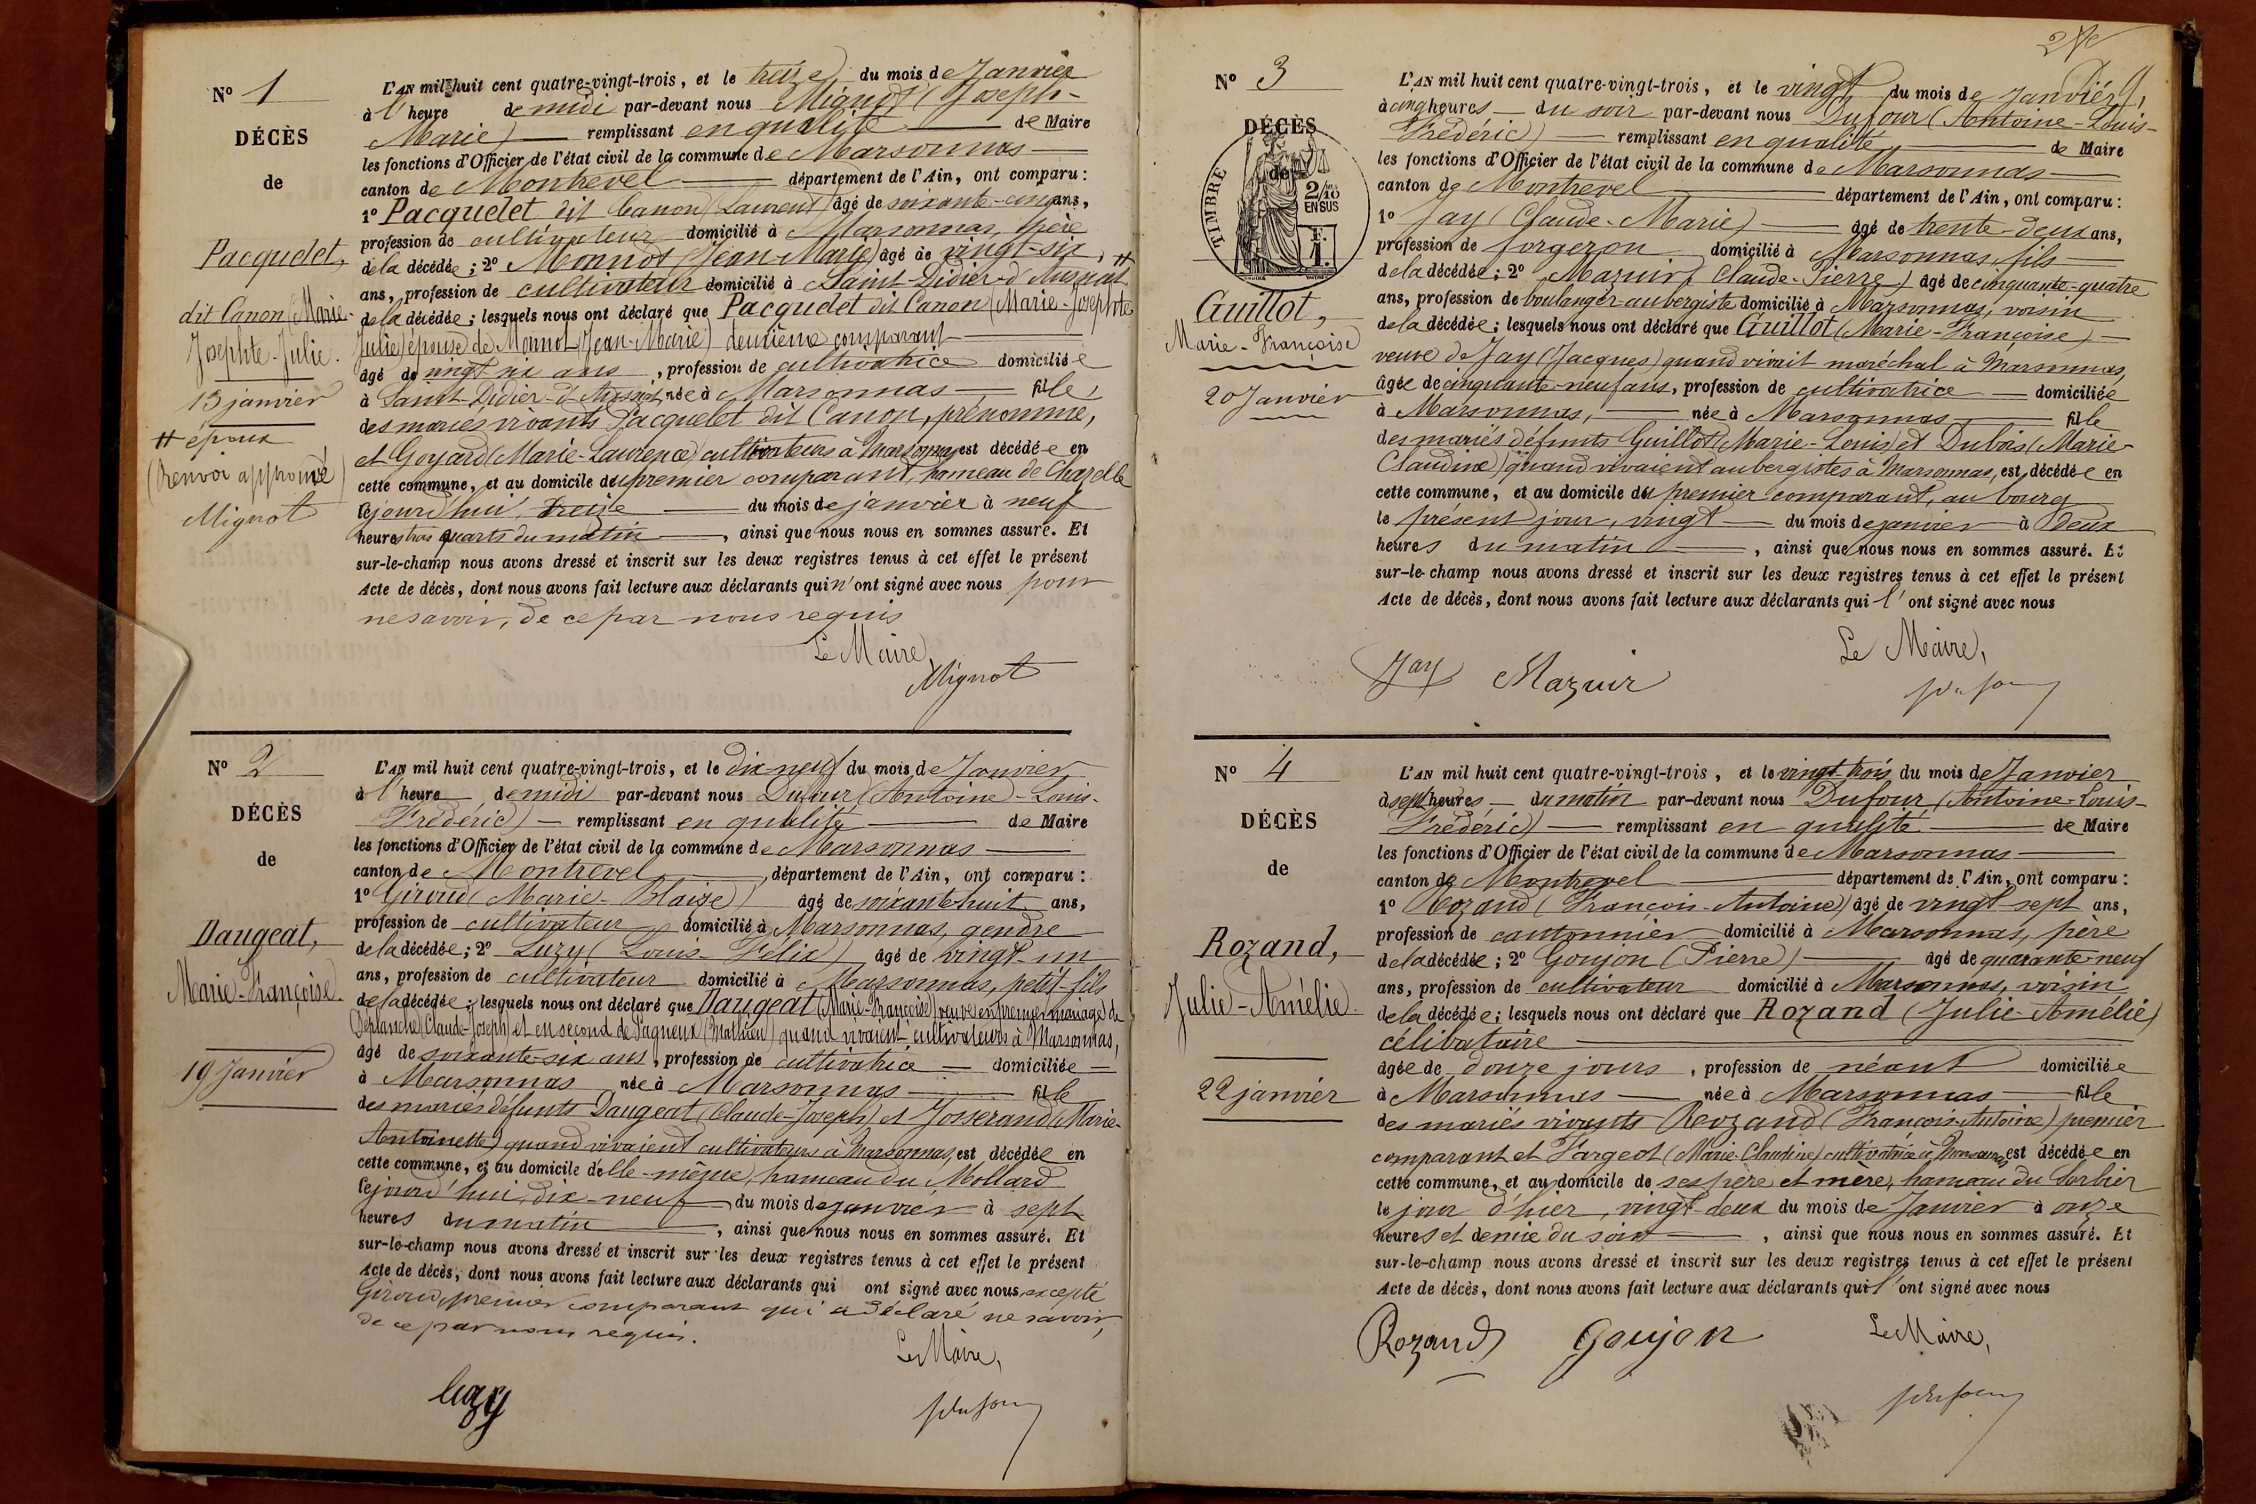 N° 1
DÉCÈS
de
Pacquelet,
dit Canon (Marie-
Josephte-Julie.
13 janvier
# époux
(Renvoi approuvé)
Mignot
L'AN mil huit cent quatre-vingt-trois, et le treize du mois de Janvier
à l'heure de midi par-devant nous Mignot (Joseph-
Marie) remplissant en qualité de Maire
les fonctions d'Officier de l'état civil de la commune de Marsonnas
canton de Montrevel département de l'Ain, ont comparu :
1° Pacquelet dit Canon (Laurent) âgé de soixante-cinq ans,
profession de cultivateur domicilié à Marsonnas, père
de la décédée ; 2° Monnot (Jean-Marie) âgé de vingt-six
ans, profession de cultivateur domicilié à Saint-Didier-d'Aussiat #
de la décédée ; lesquels nous ont déclaré que Pacquelet dit Canon (Marie-Josephte
Julie) épouse de Monnot (Jean-Marie) deuxième comparant
âgé de vingt six ans, profession de cultivatrice domiciliée
à Saint-Didier-d'Aussiat, née à Marsonnas fille
des mariés vivants Pacquelet dit Canon, prénommé,
et Goyard (Marie-Laurence) cultivateurs à Marsonnas est décédée en
cette commune, et au domicile du premier comparant, hameau de Chazelle
le jourd'hui treize du mois de janvier à neuf
heures trois quarts du matin, ainsi que nous nous en sommes assuré. Et
sur-le-champ nous avons dressé et inscrit sur les deux registres tenus à cet effet le présent
Acte de décès, dont nous avons fait lecture aux déclarants qui n'ont signé avec nous pour
ne savoir, de ce par nous requis
Le Maire,
Mignot
N° 2
DÉCÈS
de
Daugeat,
Marie-Françoise.
19 Janvier
L'AN mil huit cent quatre-vingt-trois, et le dix-neuf du mois de Janvier
à l'heure de midi par-devant nous Dufour (Antoine-Louis-
Frédéric) remplissant en qualité de Maire
les fonctions d'Officier de l'état civil de la commune de Marsonnas
canton de Montrevel, département de l'Ain, ont comparu :
1° Giroud (Marie-Blaise) âgé de soixante huit ans,
profession de cultivateur domicilié à Marsonnas, gendre
de la décédée ; 2° Luzy (Louis-Félix) âgé de vingt-un
ans, profession de cultivateur domicilié à Marsonnas, petit-fils
de la décédée ; lesquels nous ont déclaré que Daugeat (Marie-Françoise) veuve en premier mariage de
Deplanche (Claude-Joseph) et en second de Pagneux (Mathieu) quand vivaient cultivateurs à Marsonnas,
âgé de soixante-six ans, profession de cultivatrice domiciliée
à Marsonnas née à Marsonnas fille
des mariés défunts Daugeat (Claude-Joseph) et Josserand (Marie-
Antoinette) quand vivaient cultivateurs à Marsonnas, est décédée en
cette commune, et au domicile d'elle-même, hameau du Mollard
le jourd'hui, dix-neuf du mois de janvier à sept
heures du matin, ainsi que nous nous en sommes assuré. Et
sur-le-champ nous avons dressé et inscrit sur les deux registres tenus à cet effet le présent
Acte de décès, dont nous avons fait lecture aux déclarants qui ont signé avec nous, excepté
Giroud, premier comparant qui a déclaré ne savoir,
de ce par nous requis.
Le Maire,
Luzy
Dufour
N° 3
DÉCÈS
de
TIMBRE
2/10
EN SUS
F.
1.
Guillot,
Marie-Françoise
20 Janvier
L'AN mil huit cent quatre-vingt-trois, et le vingt du mois de Janvier,
à cinq heures du soir par-devant nous Dufour (Antoine-Louis-
Frédéric) remplissant en qualité de Maire
les fonctions d'Officier de l'état civil de la commune de Marsonnas
canton de Montrevel département de l'Ain, ont comparu :
1° Jay (Claude-Marie) âgé de trente-deux ans,
profession de forgeron domicilié à Marsonnas, fils
de la décédée ; 2° Mazuir (Claude-Pierre) âgé de cinquante-quatre
ans, profession de boulanger-aubergiste domicilié à Marsonnas, voisin
de la décédée ; lesquels nous ont déclaré que Guillot (Marie-Françoise)
veuve de Jay (Jacques) quand vivait maréchal à Marsonnas
âgée de cinquante-neuf ans, profession de cultivatrice domiciliée
à Marsonnas, née à Marsonnas fille
des mariés défunts Guillot (Marie-Louis) et Dubois (Marie-
Claudine) quand vivaient aubergistes à Marsonnas, est décédée en
cette commune, et au domicile du premier comparant, au bourg
le présent jour, vingt du mois de janvier à deux
heures du matin, ainsi que nous nous en sommes assuré. Et
sur-le-champ nous avons dressé et inscrit sur les deux registres tenus à cet effet le présent
Acte de décès, dont nous avons fait lecture aux déclarants qui l'ont signé avec nous
Le Maire,
Jay Mazuir
Dufour
N° 4
DÉCÈS
de
Rozand,
Julie-Amélie.
22 janvier
L'AN mil huit cent quatre-vingt-trois, et le vingt-trois du mois de Janvier
à sept heures du matin par-devant nous Dufour (Antoine-Louis-
Frédéric) remplissant en qualité de Maire
les fonctions d'Officier de l'état civil de la commune de Marsonnas
canton de Montrevel département de l'Ain, ont comparu :
1° Rozand (François-Antoine) âgé de vingt-sept ans,
profession de cantonnier domicilié à Marsonnas, père
de la décédée ; 2° Goujon (Pierre) âgé de quarante-neuf
ans, profession de cultivateur domicilié à Marsonnas, voisin
de la décédée ; lesquels nous ont déclaré que Rozand (Julie-Amélie)
célibataire
âgée de douze jours, profession de néant domiciliée
à Marsonnas née à Marsonnas fille
des mariés vivants Rozand (François-Antoine) premier
comparant et Fargeot (Marie-Claudine) cultivatrice à Marsonnas est décédée en
cette commune, et au domicile de ses père et mère, hameau du Sorbier
le jour d'hier, vingt-deux du mois de Janvier à onze
heures et demie du soir, ainsi que nous nous en sommes assuré. Et
sur-le-champ nous avons dressé et inscrit sur les deux registres tenus à cet effet le présent
Acte de décès, dont nous avons fait lecture aux déclarants qui l'ont signé avec nous
Rozand Goujon Le Maire,
Dufour